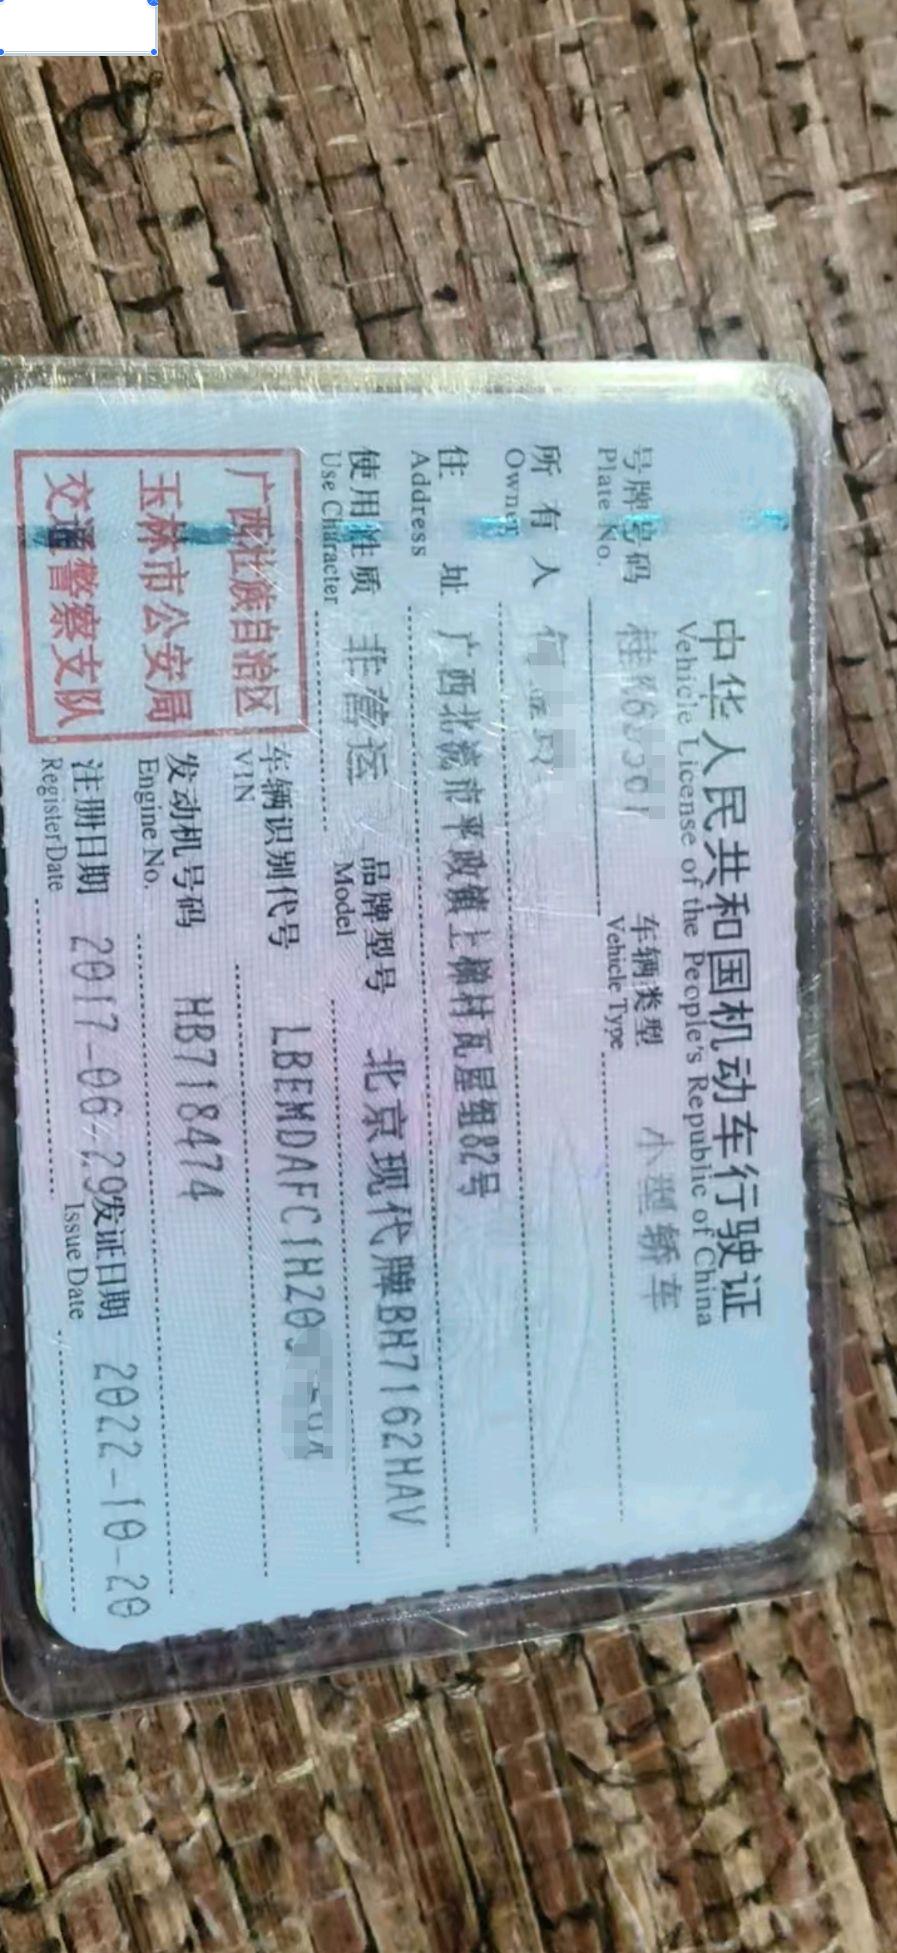 中华人民共和国机动车行驶证
Vehicle License of the People's Republic of China
号牌号码
Plate No.
车辆类型 小型轿车
Vehicle Type
所有人
Owner
住址 广西北流市平政镇上梯村瓦屋组82号
Address
使用性质 非营运 品牌型号 北京现代牌BH7162HAV
Use Character Model
广西壮族自治区
玉林市公安局
交通警察支队
车辆识别代号 LBEMDAFC1HZ0
VIN
发动机号码 HB718474
Engine No.
注册日期 2017-06-29 发证日期 2022-10-20
Register Date Issue Date